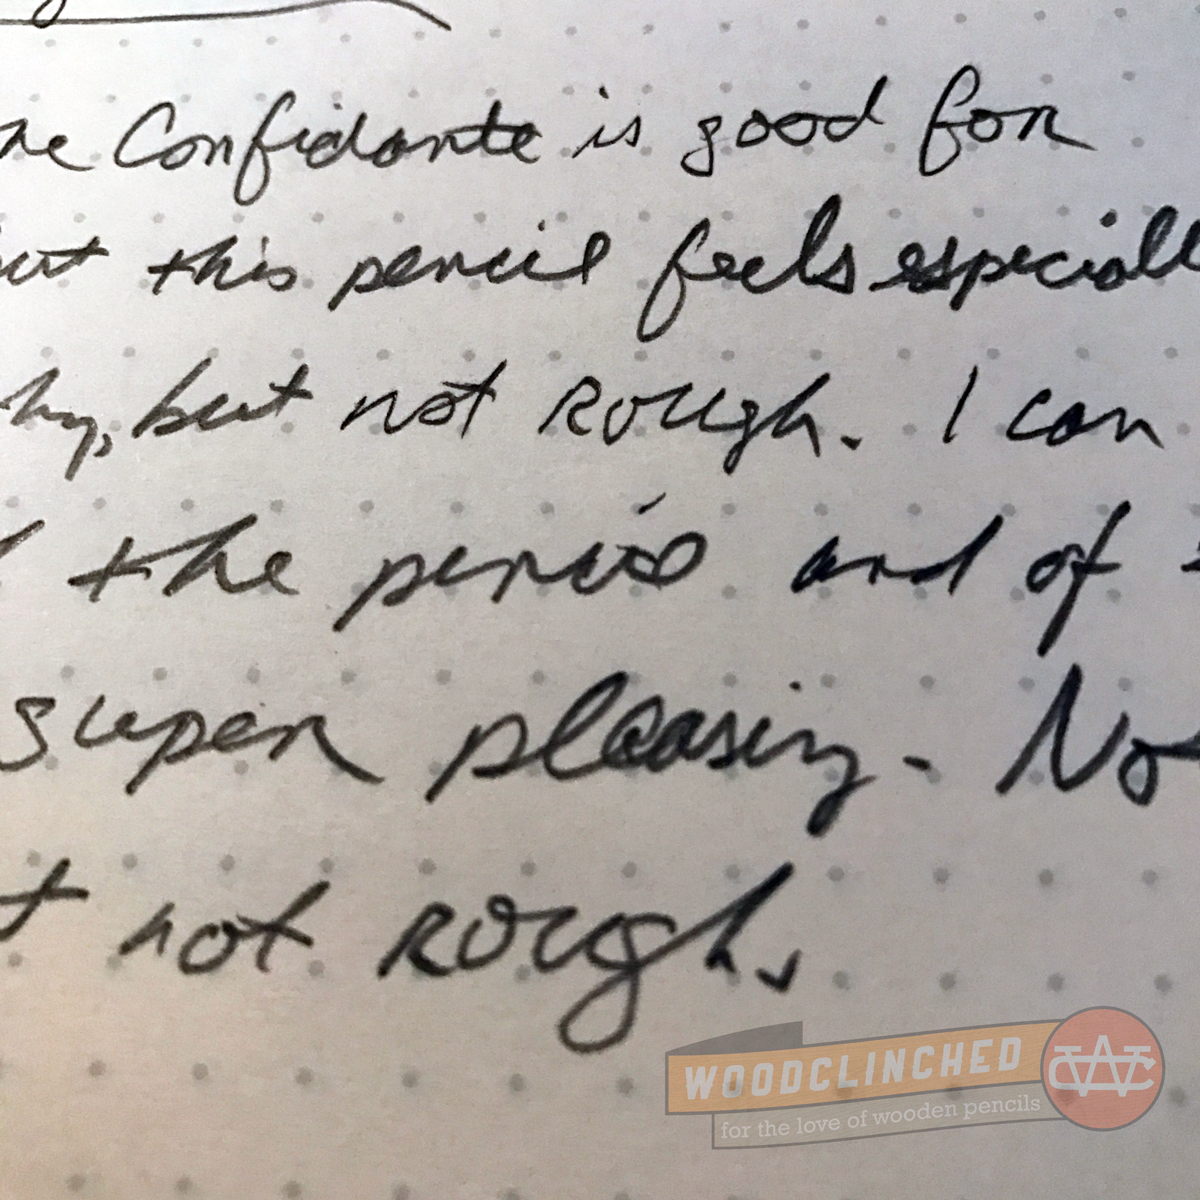 he Confidante is good for
but this pencil feels especiall
hy, but not rough. I can
the pencil and of
super pleasing. No
t not rough.
WOODCLINCHED
for the love of wooden pencils